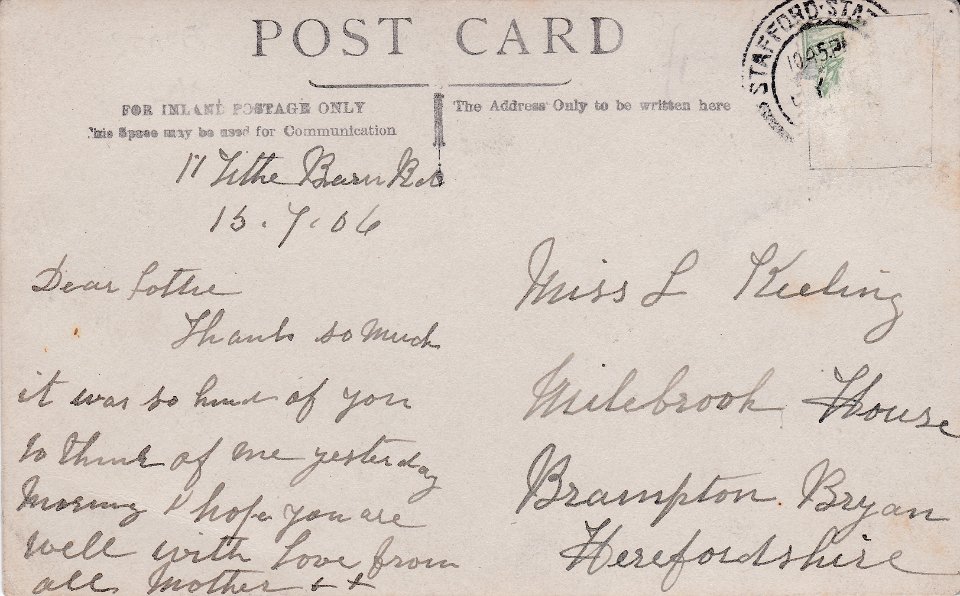 POST CARD
FOR INLAND POSTAGE ONLY
This Space may be used for Communication
The Address Only to be written here
STAFFORD STA
10.45 PM
11 Tithe Barn Rd
15.7.06
Dear Lottie
Thanks so much
it was so kind of you
to think of me yesterday
Morning I hope you are
well with Love from
all Mother + +
Miss L Keeling
Milebrook House
Brampton Bryan
Herefordshire